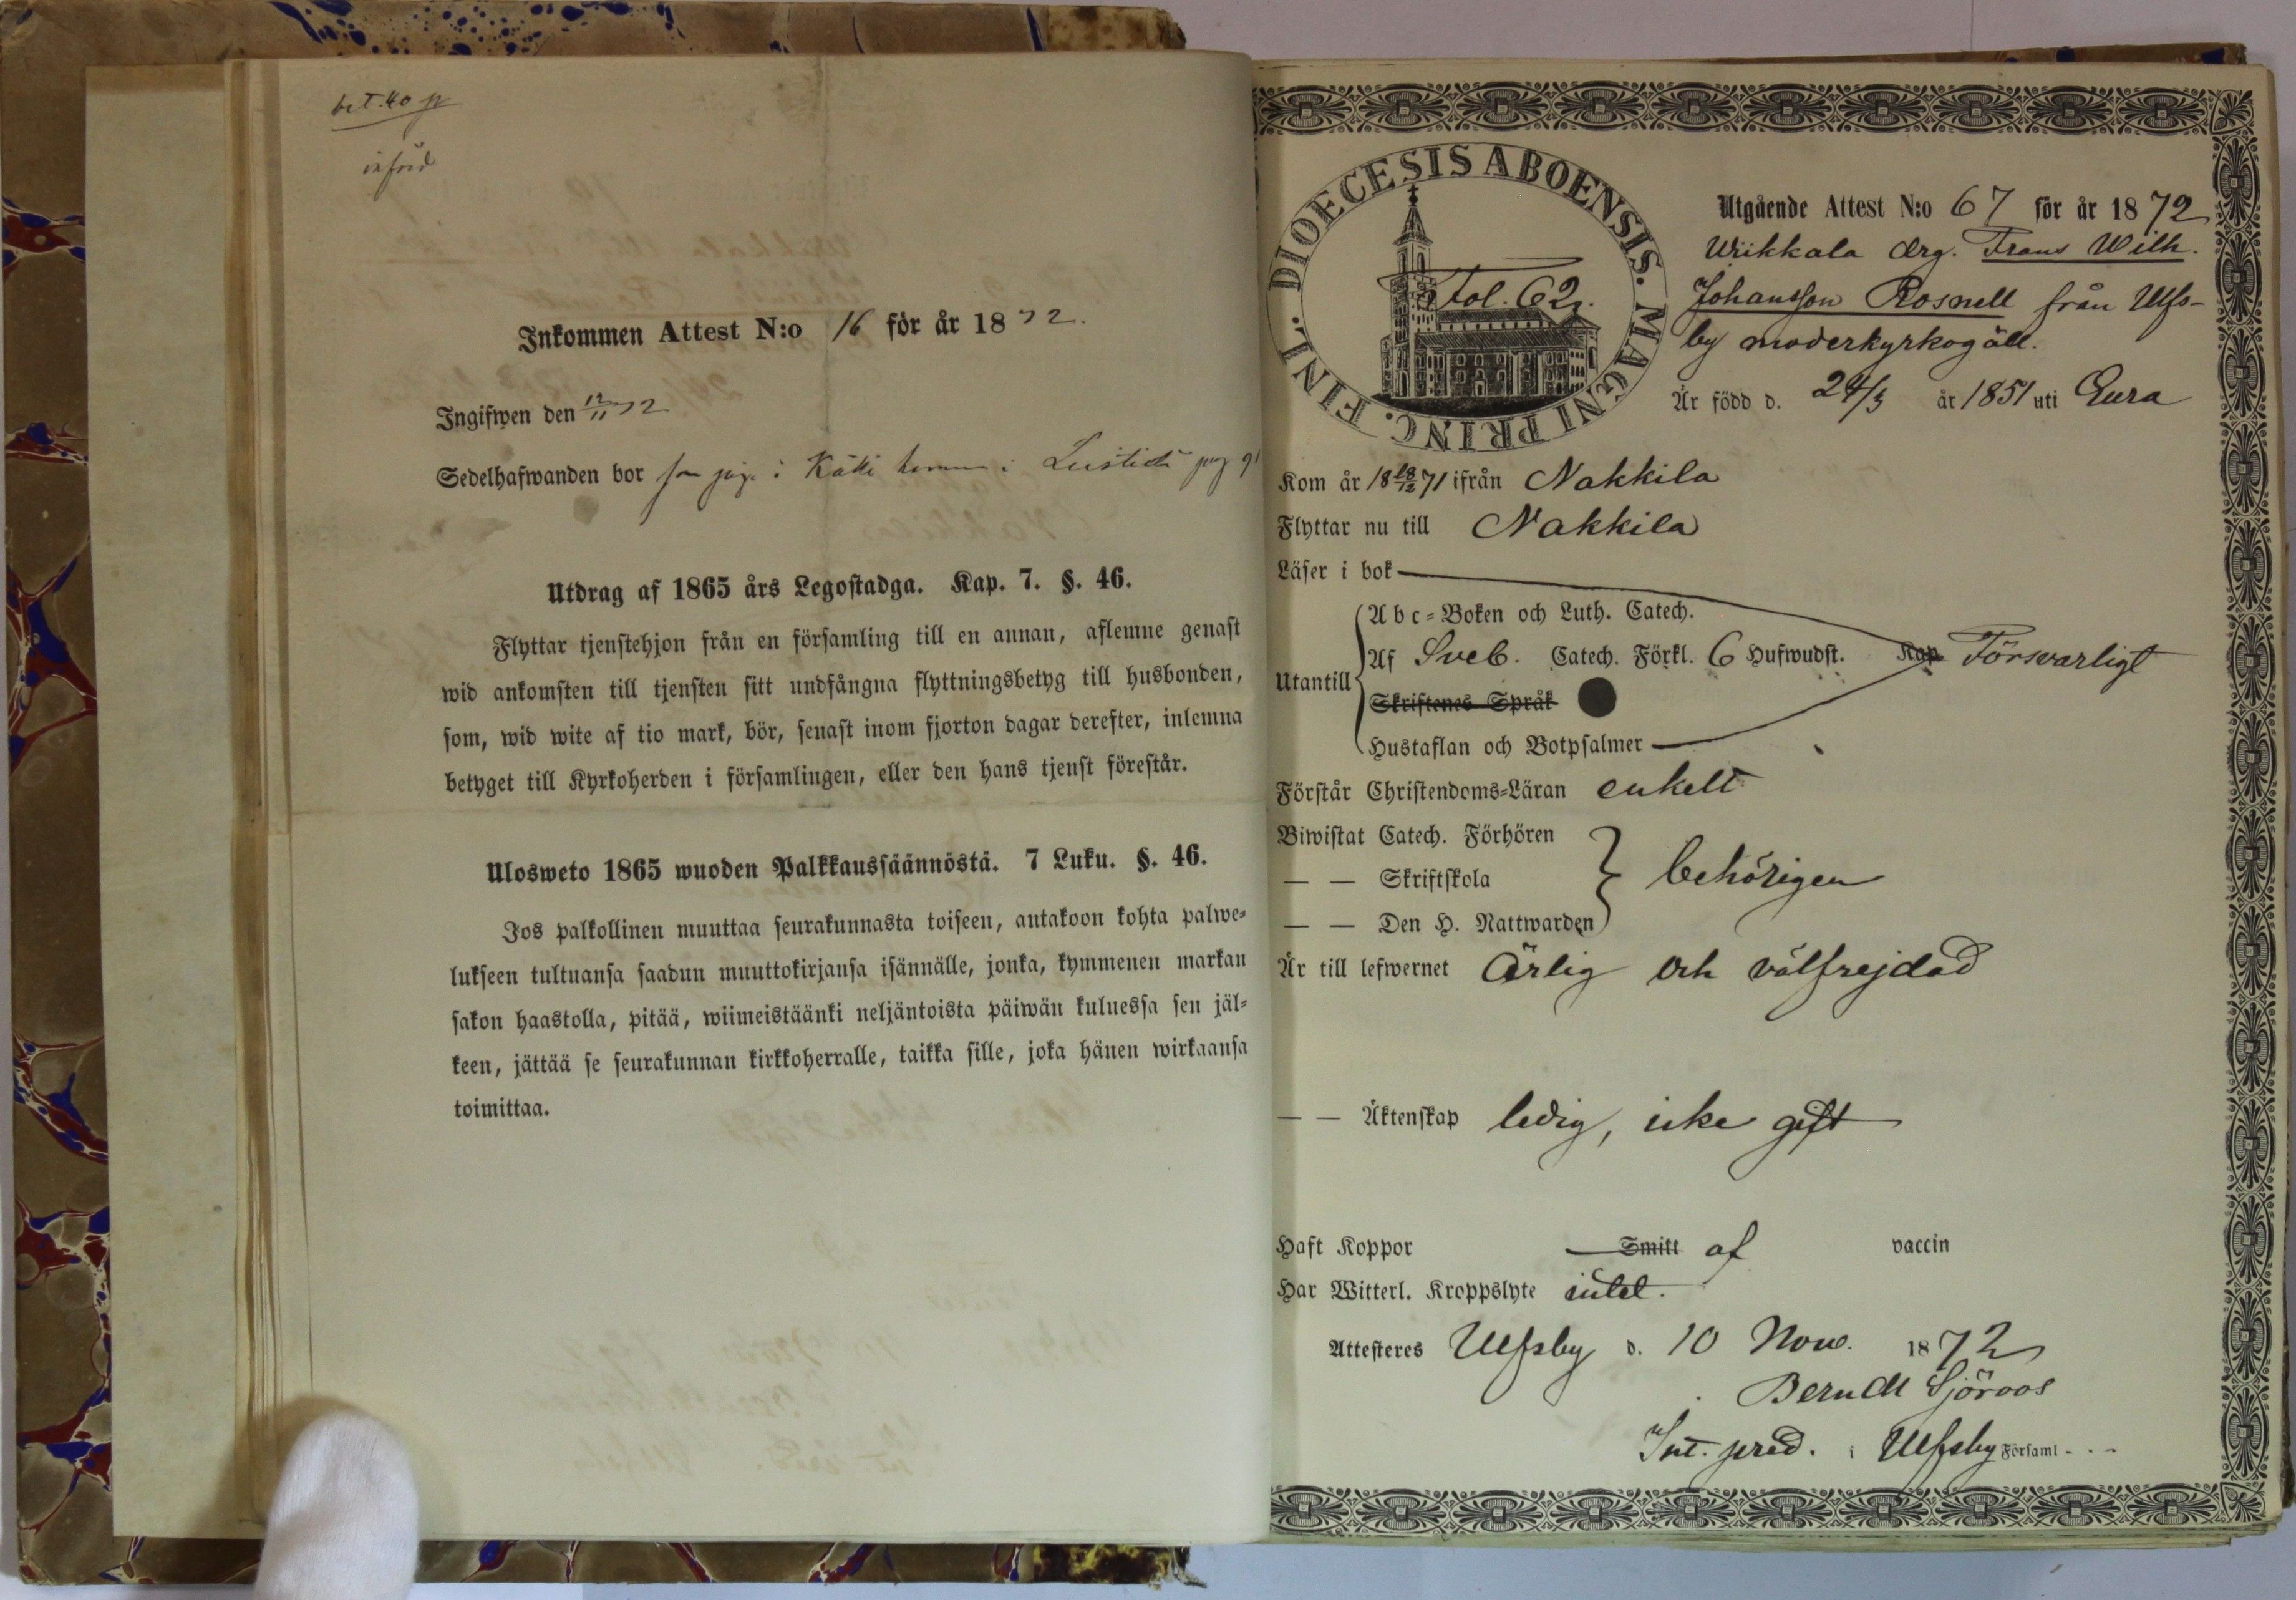 bet. 40 p
införd
Inkommen Attest N:o 16 för år 1872.
Ingifwen den 12/11 72
Sedelhafwanden bor i Kukki i
Utdrag af 1865 års Legostadga. Kap. 7. §. 46.
Flyttar tjenstehjon från en församling till en annan, aflemne genast
wid ankomsten till tjensten sitt undfångna flyttningsbetyg till husbonden,
som, wid wite af tio mark, bör, senast inom fjorton dagar derefter, inlemna
betyget till Kyrkoherden i församlingen, eller den hans tjenst förestår.
Ulosweto 1865 wuoden Palkkaussäännöstä. 7 Luku. §. 46.
Jos palkollinen muuttaa seurakunnasta toiseen, antakoon kohta palwe=
lukseen tultuansa saadun muuttokirjansa isännälle, jonka, kymmenen markan
sakon haastolla, pitää, wiimeistäänki neljäntoista päiwän kuluessa sen jäl=
keen, jättää se seurakunnan kirkkoherralle, taikka sille, joka hänen wirkaansa
toimittaa.
DIOECESIS ABOENSIS. MAGNI PRINC. FINL.
Fol. 62.
Utgående Attest N:o 67 för år 1872
Wiikkala drg. Frans Wilh.
Johansson Rosnell från Ulfs-
by moderkyrkogäll.
Är född d. 24/3 år 1851 uti Eura
Kom år 18 28/12 71 ifrån Nakkila
Flyttar nu till Nakkila
Läser i bok
Utantill
A b c = Boken och Luth. Catech.
Af Sveb. Catech. Förkl. 6 Hufwudst. Kap Försvarligt
Skriftenes Språk
Hustaflan och Botpsalmer
Förstår Christendoms=Läran enkelt
Biwistat Catech. Förhören
— — Skriftskola behörigen
— — Den H. Nattwarden
Är till lefwernet Ärlig och välfrejdad
— — Äktenskap ledig, icke gift
Haft Koppor Smitt af vaccin
Har Witterl. Kroppslyte intet.
Attesteres Ulfsby d. 10 Nov. 1872
Berndt Sjöroos
Int. pred. i Ulfsby Församl - - -